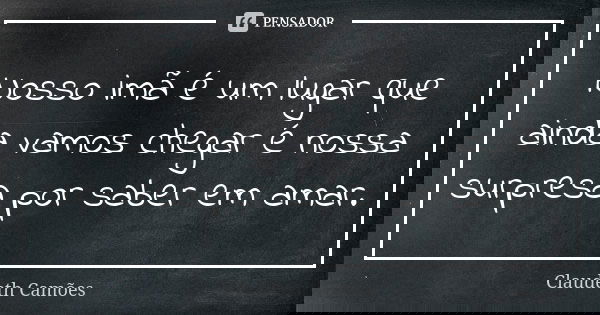 PENSADOR
Nosso imã é um lugar que
ainda vamos chegar é nossa
surpresa por saber em amar.
Claudeth Camões